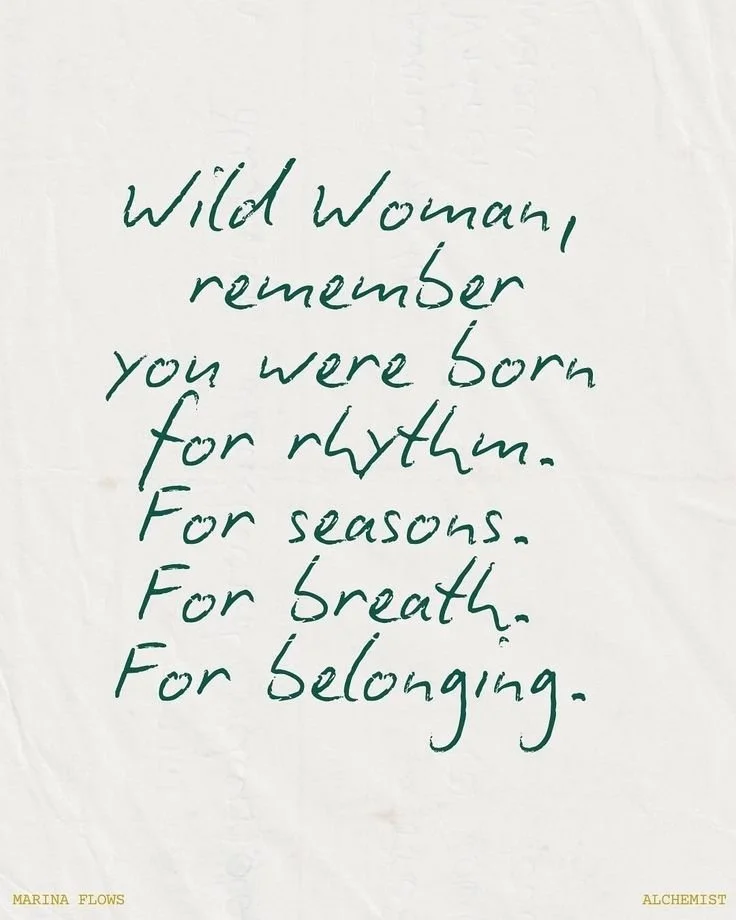 Wild Woman,
remember
you were born
for rhythm.
For seasons.
For breath.
For belonging.
MARINA FLOWS
ALCHEMIST